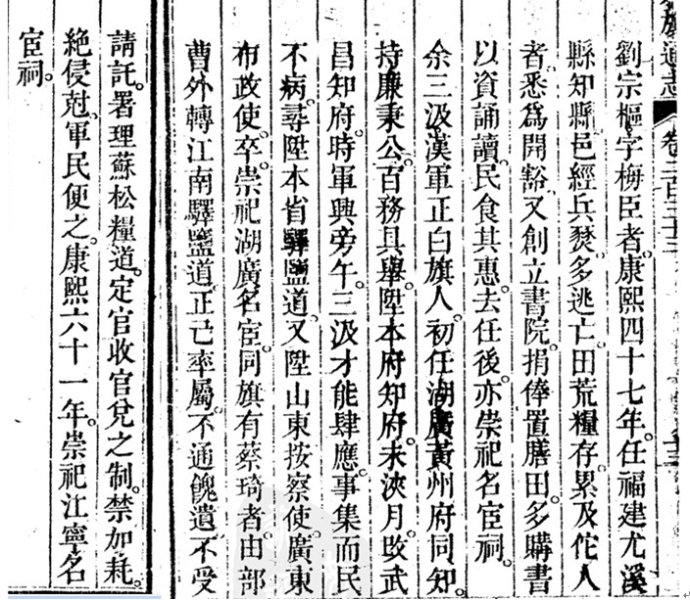 通志 卷二百三十三
劉宗樞字梅臣者康熙四十七年任福建尤溪
縣知縣邑經兵燹多逃亡田荒糧存累及佗人
者悉爲開豁又創立書院捐俸置膳田多購書
以資誦讀民食其惠去任後亦崇祀名宦祠。
余三汲漢軍正白旗人初任湖廣黃州府同知。
持廉秉公百務具舉陞本府知府未浹月改武
昌知府。時軍興旁午三汲才能肆應。事集而民
不病。尋陞本省驛鹽道又陞山東按察使。廣東
布政使。卒崇祀湖廣名宦。同旗有蔡琦者由部
曹外轉江南驛鹽道。正己率屬。不通餽遺不受
請託。署理蘇松糧道。定官收官兌之制。禁加耗。
絶侵尅。軍民便之。康熙六十一年。崇祀江寧名
宦祠。